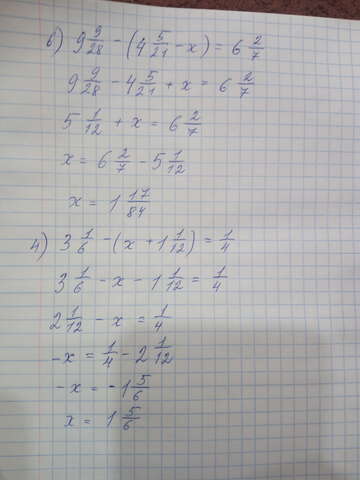 6) 9 9/28 - (4 5/21 - x) = 6 2/7
9 9/28 - 4 5/21 + x = 6 2/7
5 1/12 + x = 6 2/7
x = 6 2/7 - 5 1/12
x = 1 17/84
4) 3 1/6 - (x + 1 1/12) = 1/4
3 1/6 - x - 1 1/12 = 1/4
2 1/12 - x = 1/4
-x = 1/4 - 2 1/12
-x = -1 5/6
x = 1 5/6